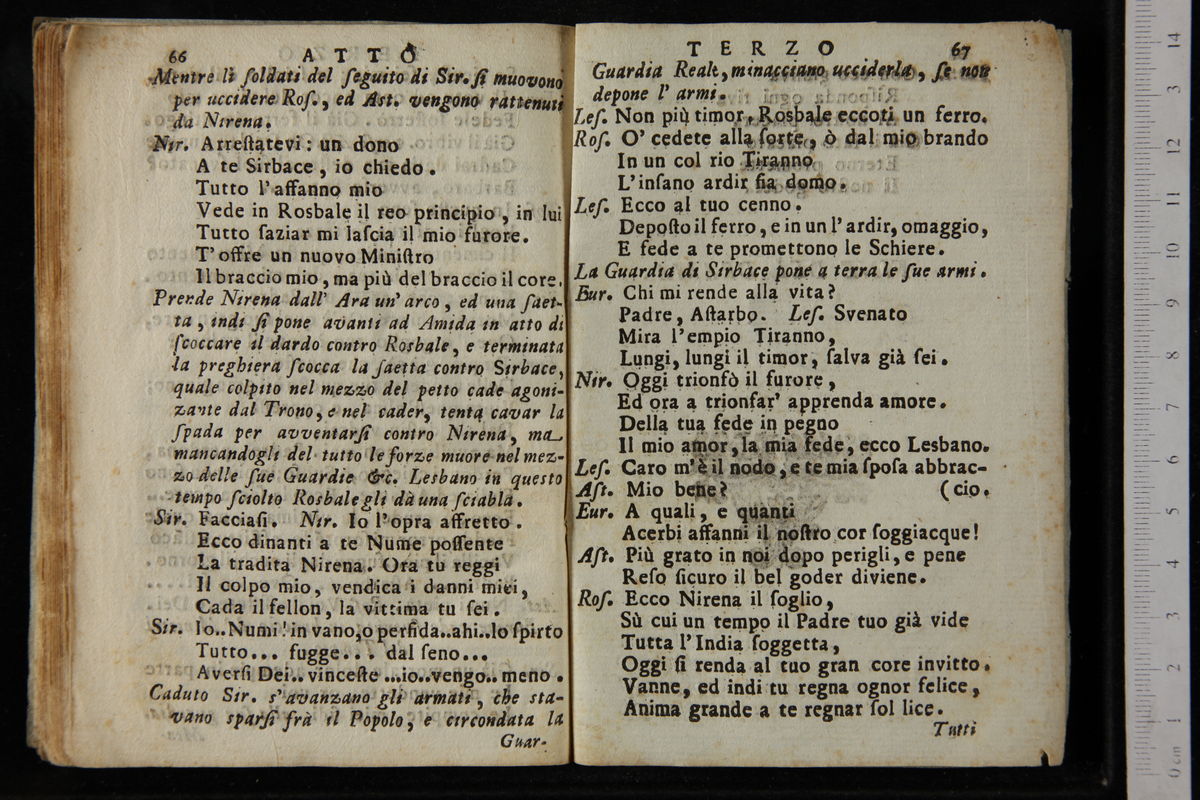 66 ATTO
Mentre li ſoldati del ſeguito di Sir. ſi muovono
per uccidere Roſ., ed Aſt. vengono rattenuti
da Nirena.
Nir. Arreſtatevi : un dono
A te Sirbace, io chiedo.
Tutto l'affanno mio
Vede in Rosbale il reo principio, in lui
Tutto ſaziar mi laſcia il mio furore.
T'offre un nuovo Miniſtro
Il braccio mio, ma più del braccio il core.
Prende Nirena dall' Ara un' arco, ed una ſaet-
ta, indi ſi pone avanti ad Amida in atto di
ſcoccare il dardo contro Rosbale, e terminata
la preghiera ſcocca la ſaetta contro Sirbace,
quale colpito nel mezzo del petto cade agoni-
zante dal Trono, e nel cader, tenta cavar la
ſpada per avventarſi contro Nirena, ma
mancandogli del tutto le forze muore nel mez-
zo delle ſue Guardie &c. Lesbano in questo
tempo ſciolto Rosbale gli dà una ſciabla.
Sir. Facciaſi. Nir. Io l'opra affretto.
Ecco dinanti a te Nume poſſente
La tradita Nirena. Ora tu reggi
Il colpo mio, vendica i danni miei,
Cada il fellon, la vittima tu ſei.
Sir. Io..Numi! in vano, o perfida..ahi..lo ſpirto
Tutto... fugge... dal ſeno...
Averſi Dei.. vinceſte ...io..vengo.. meno.
Caduto Sir. s'avanzano gli armati, che sta-
vano sparſi frà il Popolo, e circondata la
Guar-
TERZO 67
Guardia Reale, minacciano ucciderla, ſe non
depone l' armi.
Leſ. Non più timor, Rosbale eccoti un ferro.
Roſ. O' cedete alla ſorte, ò dal mio brando
In un col rio Tiranno
L'inſano ardir ſia domo.
Leſ. Ecco al tuo cenno.
Depoſto il ferro, e in un l'ardir, omaggio,
E fede a te promettono le Schiere.
La Guardia di Sirbace pone a terra le ſue armi.
Eur. Chi mi rende alla vita?
Padre, Aſtarbo. Leſ. Svenato
Mira l'empio Tiranno,
Lungi, lungi il timor, ſalva già ſei.
Nir. Oggi trionfò il furore,
Ed ora a trionfar' apprenda amore.
Della tua fede in pegno
Il mio amor, la mia fede, ecco Lesbano.
Leſ. Caro m'è il nodo, e te mia ſpoſa abbrac-
Aſt. Mio bene? (cio.
Eur. A quali, e quanti
Acerbi affanni il noſtro cor ſoggiacque!
Aſt. Più grato in noi dopo perigli, e pene
Reſo ſicuro il bel goder diviene.
Roſ. Ecco Nirena il ſoglio,
Sù cui un tempo il Padre tuo già vide
Tutta l'India ſoggetta,
Oggi ſi renda al tuo gran core invitto.
Vanne, ed indi tu regna ognor felice,
Anima grande a te regnar ſol lice.
Tutti
0 cm 1 2 3 4 5 6 7 8 9 10 11 12 13 14